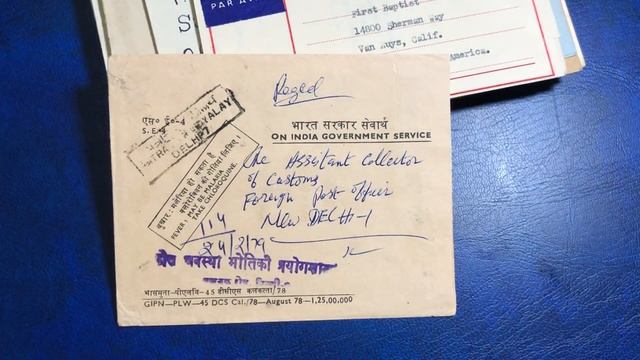 PAR AV
First Baptist
14800 Sherman Way
Van Nuys, Calif.
America.
Reged
एस० ई०-4
S.E.-4
DELHI-7
भारत सरकार सेवार्थ
ON INDIA GOVERNMENT SERVICE
The Assistant Collector
of Customs
Foreign Post Office
New DELHI-1
बुखार : मलेरिया हो सकता है
क्लोरोक्विन की गोलियां लीजिए
FEVER : MAY BE MALARIA
TAKE CHLOROQUINE.
114
24/2/79
अवस्था भौतिकी प्रयोगशाला
भासमुना-पीएलबि-45 डीसीएस कलकत्ता/78
GIPN-PLW-45 DCS Cal./78-August 78-1,25,00,000